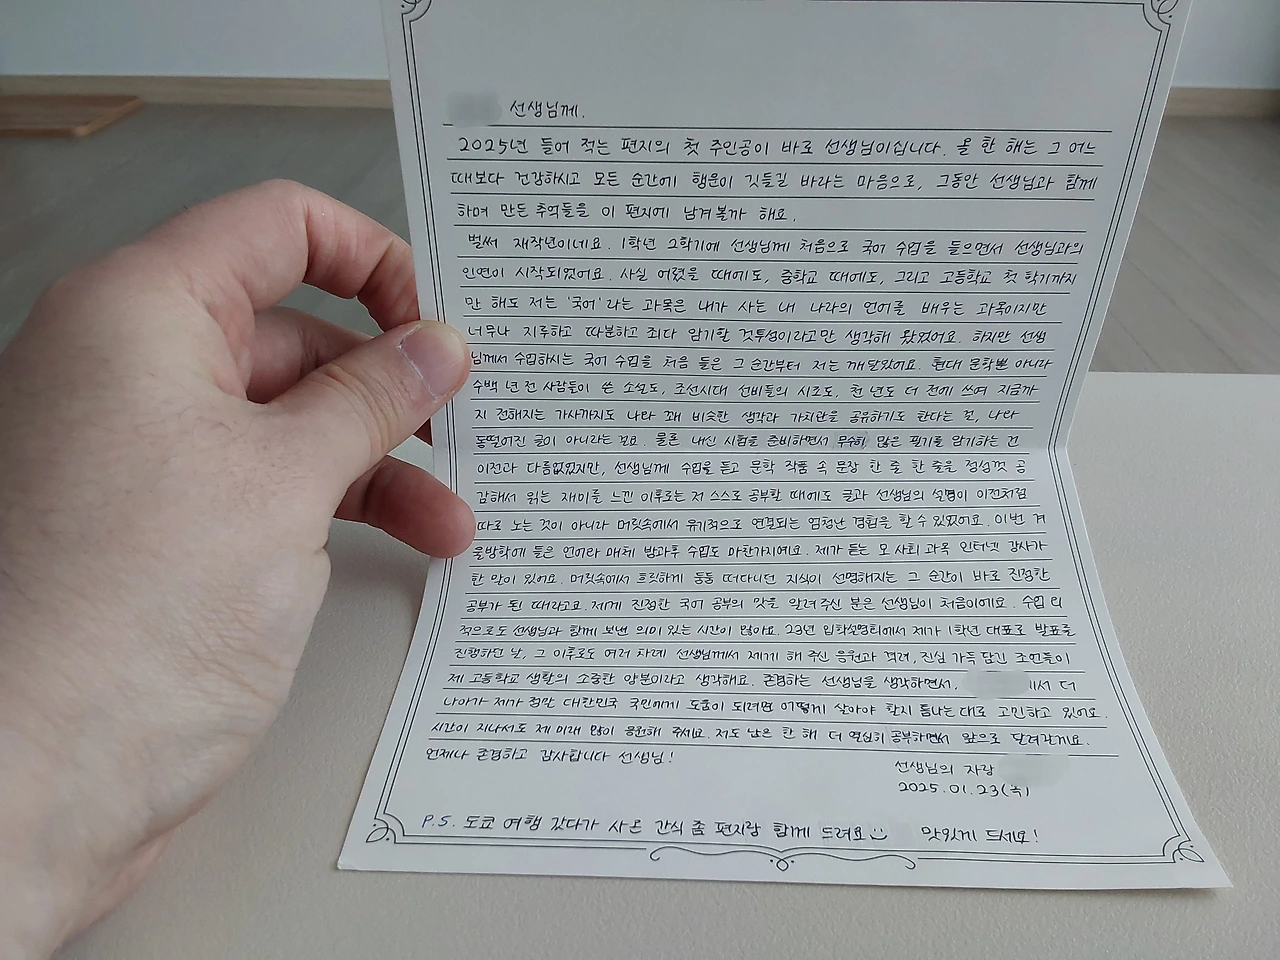 선생님께.
2025년 들어 적는 편지의 첫 주인공이 바로 선생님이십니다. 올 한 해는 그 어느
때보다 건강하시고 모든 순간에 행운이 깃들길 바라는 마음으로, 그동안 선생님과 함께
하며 만든 추억들을 이 편지에 남겨볼까 해요.
벌써 재작년이네요. 1학년 2학기에 선생님께 처음으로 국어 수업을 들으면서 선생님과의
인연이 시작되었어요. 사실 어렸을 때에도, 중학교 때에도, 그리고 고등학교 첫 학기까지
만 해도 저는 '국어'라는 과목은 내가 사는 내 나라의 언어를 배우는 과목이지만
너무나 지루하고 따분하고 죄다 암기할 것투성이라고만 생각해 왔었어요. 하지만 선생
님께서 수업하시는 국어 수업을 처음 들은 그 순간부터 저는 깨달았어요. 현대 문학뿐 아니라
수백 년 전 사람들이 쓴 소설도, 조선시대 선비들의 시조도, 천 년도 더 전에 쓰여 지금까
지 전해지는 가사까지도 나랑 꽤 비슷한 생각과 가치관을 공유하기도 한다는 걸, 나랑
동떨어진 글이 아니라는 걸요. 물론 내신 시험을 준비하면서 무수히 많은 필기를 암기하는 건
이전과 다름없었지만, 선생님께 수업을 듣고 문학 작품 속 문장 한 줄 한 줄을 정성껏 공
감해서 읽는 재미를 느낀 이후로는 저 스스로 공부할 때에도 글과 선생님의 설명이 이전처럼
따로 노는 것이 아니라 머릿속에서 유기적으로 연결되는 엄청난 경험을 할 수 있었어요. 이번 겨
울방학에 들은 언어와 매체 방과후 수업도 마찬가지예요. 제가 듣는 모 사회 과목 인터넷 강사가
한 말이 있어요. 머릿속에서 흐릿하게 둥둥 떠다니던 지식이 선명해지는 그 순간이 바로 진정한
공부가 된 때라고요. 제게 진정한 국어 공부의 맛을 알려 주신 분은 선생님이 처음이에요. 수업 외
적으로도 선생님과 함께 보낸 의미 있는 시간이 많아요. 23년 입학설명회에서 제가 1학년 대표로 발표를
진행하던 날, 그 이후로도 여러 차례 선생님께서 제게 해 주신 응원과 격려, 진심 가득 담긴 조언들이
제 고등학교 생활의 소중한 양분이라고 생각해요. 존경하는 선생님을 생각하면서, 에서 더
나아가 제가 정말 대한민국 국민에게 도움이 되려면 어떻게 살아야 할지 틈나는 대로 고민하고 있어요.
시간이 지나서도 제 미래 많이 응원해 주세요. 저도 남은 한 해 더 열심히 공부하면서 앞으로 달려갈게요.
언제나 존경하고 감사합니다 선생님!
선생님의 자랑
2025.01.23(목)
P.S. 도쿄 여행 갔다가 사온 간식 좀 편지랑 함께 드려요 맛있게 드세요!